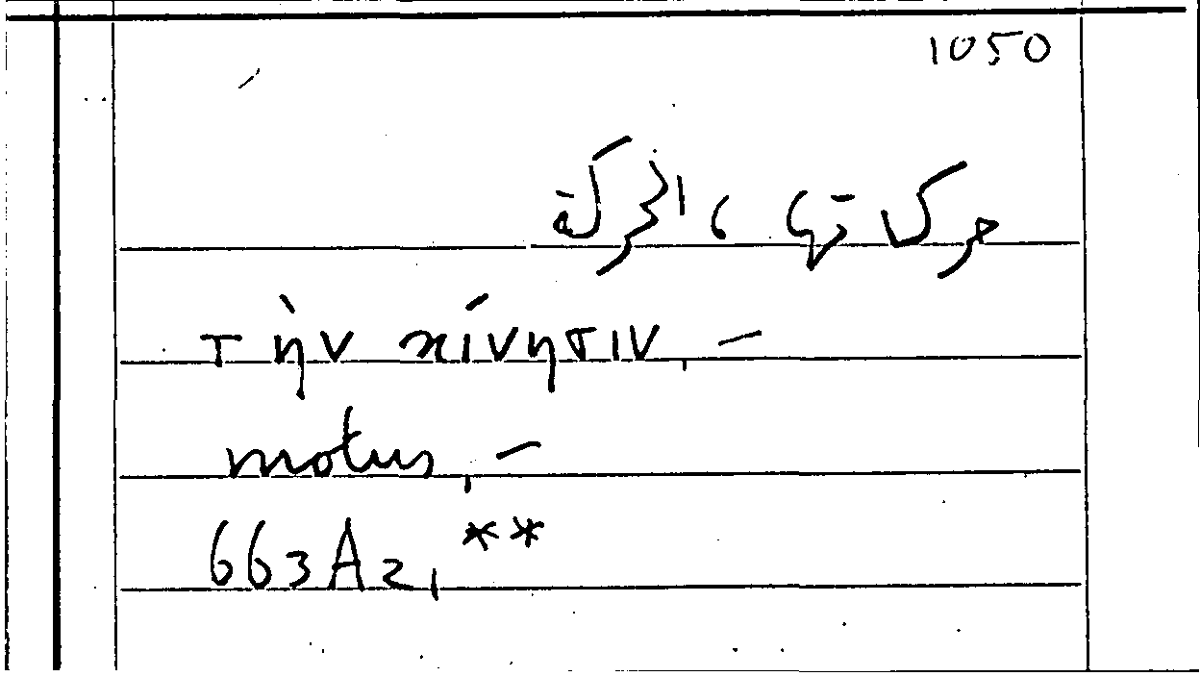 1050
حركتها ، الحركة
τὴν κίνησιν, –
motus, –
663A2, **